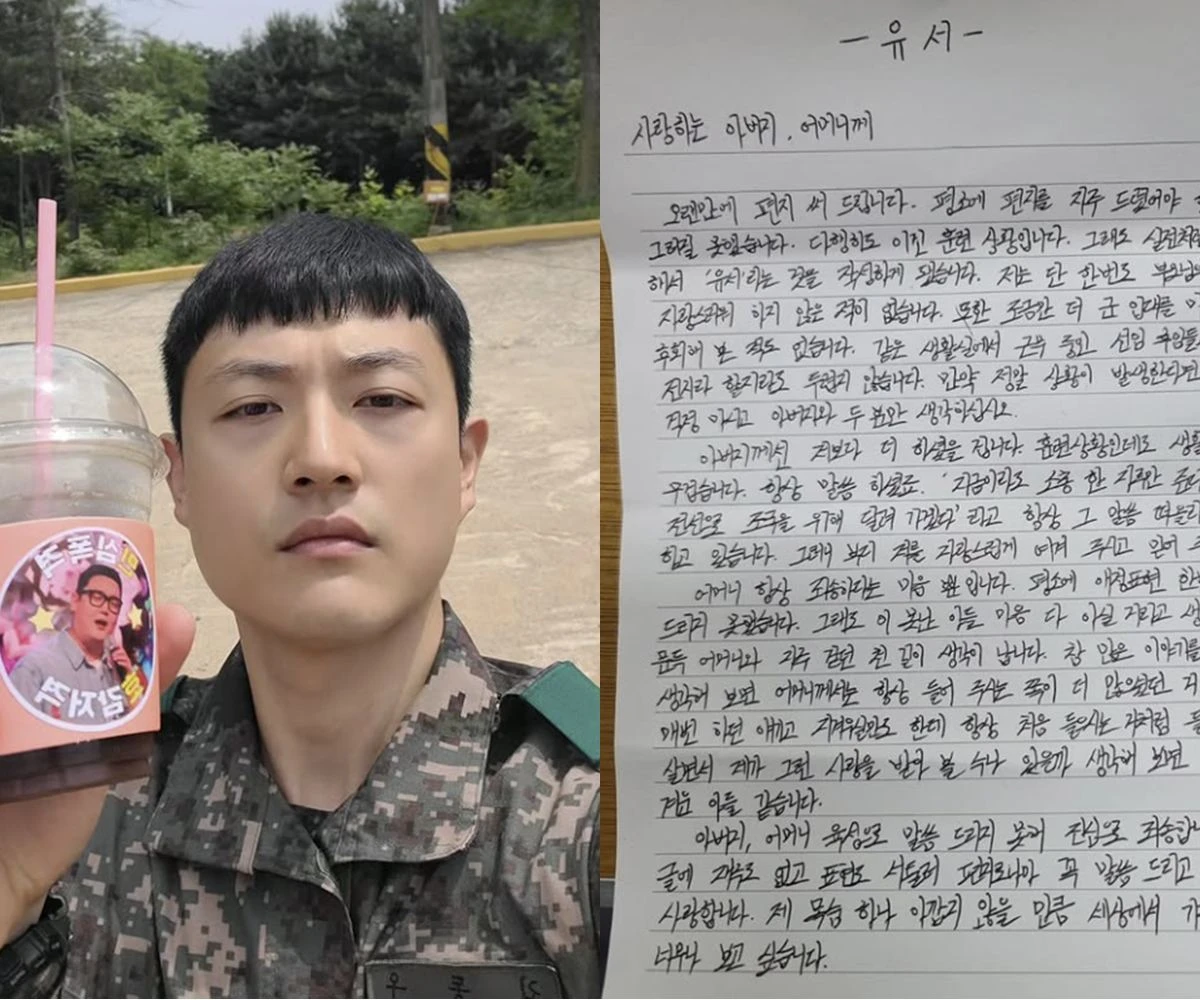 팬심폭주
김동우
- 유서 -
사랑하는 아버지, 어머니께
오랜만에 편지 써 드립니다. 평소에 편지를 자주 드렸어야
그러질 못했습니다. 다행히도 이건 훈련 상황입니다. 그래도 실전처럼
해서 '유서'라는 것을 작성하게 됐습니다. 저는 단 한번도 부모님
자랑스러워 하지 않은 적이 없습니다. 또한 조금간 더 군 입대를
후회해 본 적도 없습니다. 같은 생활실에서 근무 중인 선임 후임들
전시라 할지라도 두렵지 않습니다. 만약 정말 상황이 발생한다면
걱정 마시고 아버지와 두 분만 생각하십시오.
아버지께선 저보다 더 하셨을 겁니다. 훈련상황인데도
무겁습니다. 항상 말씀 하셨죠. '지금이라도 소총 한 자루만 준다
전선으로 조국을 위해 달려 가겠다'라고 항상 그 말씀
하고 있습니다. 그러니 부디 저를 자랑스럽게 여겨 주시고 믿어
어머니 항상 죄송하다는 마음 뿐입니다. 평소에 애정표현 한번
드리지 못했습니다. 그래도 이 못난 아들 마음 다 아실 거라고
문득 어머니와 자주 걷던 천 길이 생각이 납니다. 참 많은 이야기를
생각해 보면 어머니께서는 항상 들어 주시는 쪽이 더 많으셨던
매번 하던 얘기고 지겨우실만도 한데 항상 처음 들으시는 것처럼
살면서 제가 그런 사랑을 받아 볼 수나 있을까 생각해 보면
겨운 아들 같습니다.
아버지, 어머니 육성으로 말씀 드리지 못해 진심으로 죄송합니
글에 재주도 없고 표현도 서툴러 편지로나마 꼭 말씀 드리고
사랑합니다. 제 목숨 하나 아깝지 않을 만큼 세상에서
너무나 보고 싶습니다.